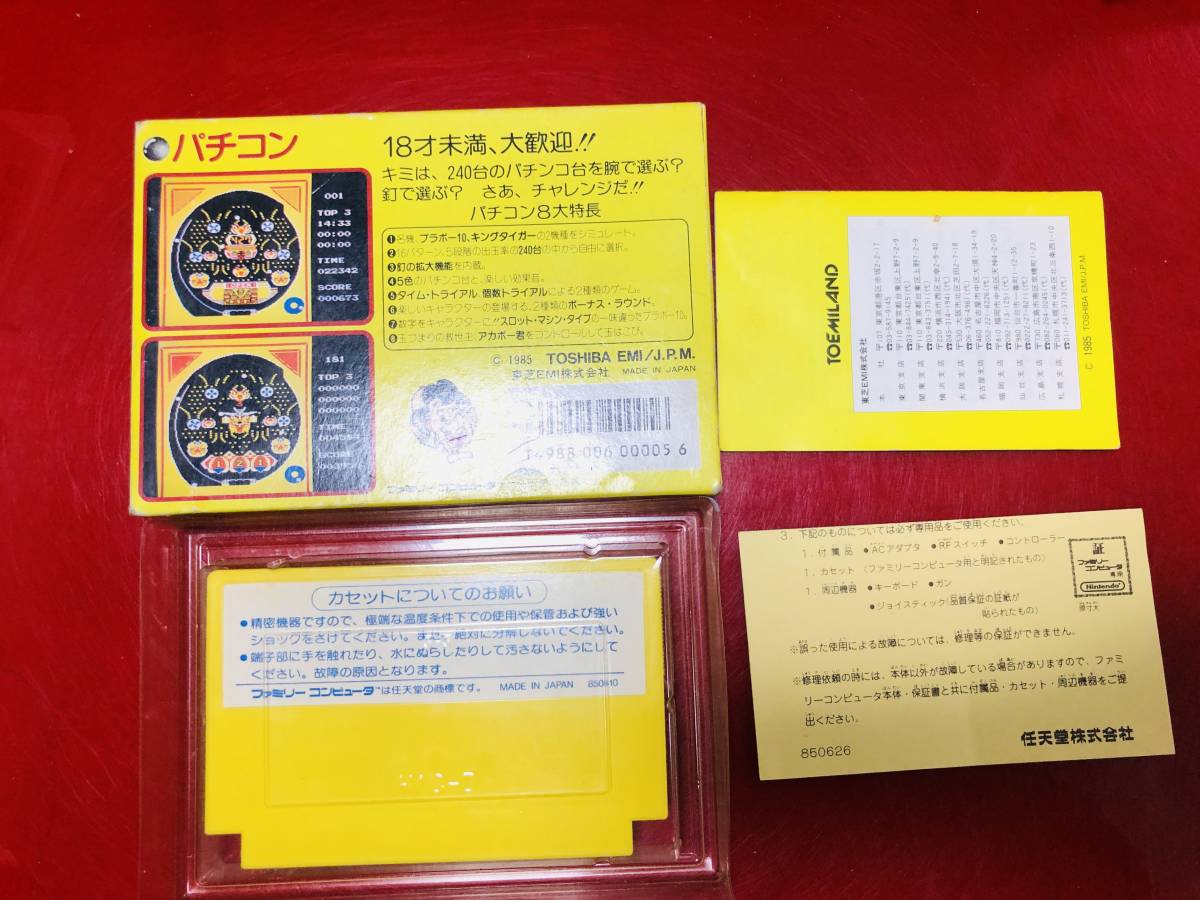 パチコン
18才未満、大歓迎!!
キミは、240台のパチンコ台を腕で選ぶ?
釘で選ぶ? さあ、チャレンジだ!!
パチコン8大特長
❶名機、ブラボー10、キングタイガーの2機種をシミュレート。
❷16パターン、5段階の出玉率の240台の中から自由に選択。
❸釘の拡大機能を内蔵。
❹5色のパチンコ台と、楽しい効果音。
❺タイム・トライアル、個数トライアルによる2種類のゲーム。
❻楽しいキャラクターの登場する、2種類のボーナス・ラウンド。
❼数字をキャラクターに!!スロット・マシン・タイプの一味違ったブラボー10。
❽玉づまりの救世主、アカボー君をコントロールして玉はこび。
© 1985 TOSHIBA EMI/J.P.M.
東芝EMI株式会社 MADE IN JAPAN
4988 006 00005 6
ファミリー コンピュータ
001
TOP 3
14:33
00:00
00:00
TIME
022342
SCORE
000673
181
TOP 3
000000
000000
000000
TIME
SCORE
1 2 1
TOEMILAND
東芝EMI株式会社
本社 〒107 東京都港区赤坂2-2-17
© 1985 TOSHIBA EMI/J.P.M.
カセットについてのお願い
●精密機器ですので、極端な温度条件下での使用や保管および強い
ショックをさけてください。また、絶対に分解しないでください。
●端子部に手を触れたり、水にぬらしたりして汚さないようにして
ください。故障の原因となります。
ファミリー コンピュータは任天堂の商標です。 MADE IN JAPAN
3. 下記のものについては必ず専用品をご使用ください。
1. 付属品 ●ACアダプタ ●RFスイッチ ●コントローラー
1. カセット (ファミリーコンピュータ用と明記されたもの)
1. 周辺機器 ●キーボード ●ガン
●ジョイスティック(品質保証の証紙が
貼られたもの)
証
ファミリー
コンピュータ
専用
Nintendo
原寸大
※誤った使用による故障については、修理等の保証ができません。
※修理依頼の時には、本体以外が故障している場合がありますので、ファミ
リーコンピュータ本体・保証書と共に付属品・カセット・周辺機器をご提
出ください。
850626
任天堂株式会社